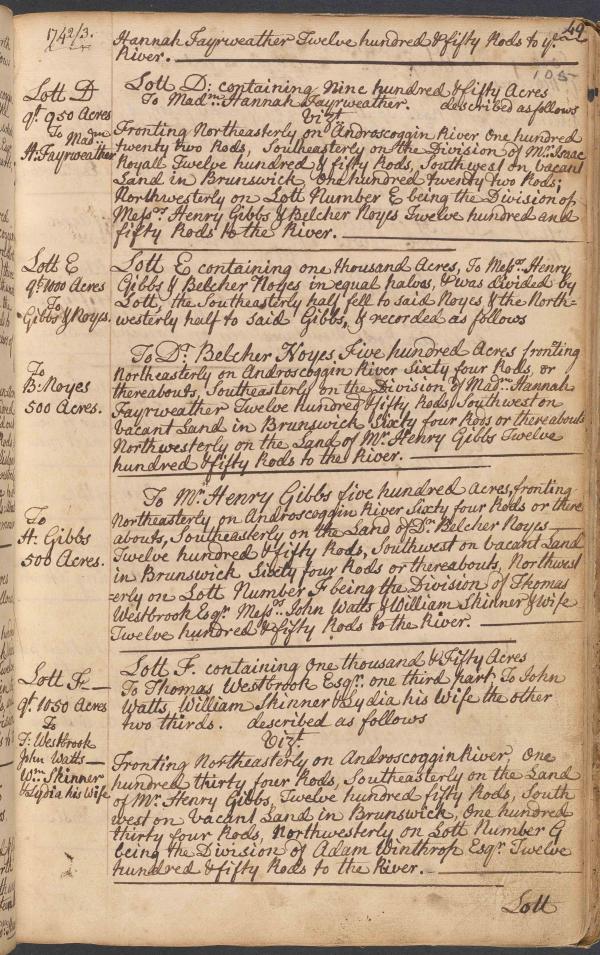 1742/3.
49
105
Hannah Fayrweather Twelve hundred & fifty Rods to yᵉ
River.
Lott D
qᵗ 950 Acres
To Madᵐ
H. Fayrweather
Lott D: containing Nine hundred & fifty Acres
To Madᵐ Hannah Fayrweather. described as follows
Vizt
Fronting Northeasterly on Androscoggin River One hundred
twenty two Rods, Southeasterly on the Division of Mʳ Isaac
Royall Twelve hundred & fifty Rods, Southwest on vacant
Land in Brunswick One hundred twenty two Rods;
Northwesterly on Lott Number E being the Division of
Messʳˢ Henry Gibbs & Belcher Noyes Twelve hundred and
fifty Rods to the River.
Lott E
qᵗ 1000 Acres
To
Gibbs & Noyes.
Lott E containing one thousand Acres, To Messʳˢ Henry
Gibbs & Belcher Noyes in equal halvs, & was divided by
Lott, the Southeasterly half fell to said Noyes & the North=
westerly half to said Gibbs, & recorded as follows
To
B: Noyes
500 Acres.
To Dʳ Belcher Noyes Five hundred Acres fronting
Northeasterly on Androscoggin River Sixty four Rods, or
thereabouts, Southeasterly on the Division of Madᵐ Hannah
Fayrweather Twelve hundred & fifty Rods, Southwest on
vacant Land in Brunswick Sixty four Rods or thereabouts
Northwesterly on the Land of Mʳ Henry Gibbs Twelve
hundred & fifty Rods to the River.
To
H. Gibbs
500 Acres.
To Mʳ Henry Gibbs five hundred Acres, fronting
Northeasterly on Androscoggin River Sixty four Rods or there
abouts, Southeasterly on the Land of Dʳ Belcher Noyes
Twelve hundred & fifty Rods, Southwest on vacant Land
in Brunswick Sixty four Rods or thereabouts, Northwest
=erly on Lott Number F being the Division of Thomas
Westbrook Esqʳ Messʳˢ John Watts & William Skinner & Wife
Twelve hundred & fifty Rods to the River.
Lott F.
qᵗ 1050 Acres
To
T: Westbrook
John Watts
Wᵐ Skinner
& Lydia his Wife
Lott F. containing One thousand & Fifty Acres
To Thomas Westbrook Esqʳ one third part To John
Watts, William Skinner & Lydia his Wife the other
two thirds. described as follows
Vizt.
Fronting Northeasterly on Androscoggin River, One
hundred thirty four Rods, Southeasterly on the Land
of Mʳ Henry Gibbs, Twelve hundred fifty Rods, South
west on vacant Land in Brunswick, One hundred
thirty four Rods, Northwesterly on Lott Number G
being the Division of Adam Winthrop Esqʳ Twelve
hundred & fifty Rods to the River.
Lott